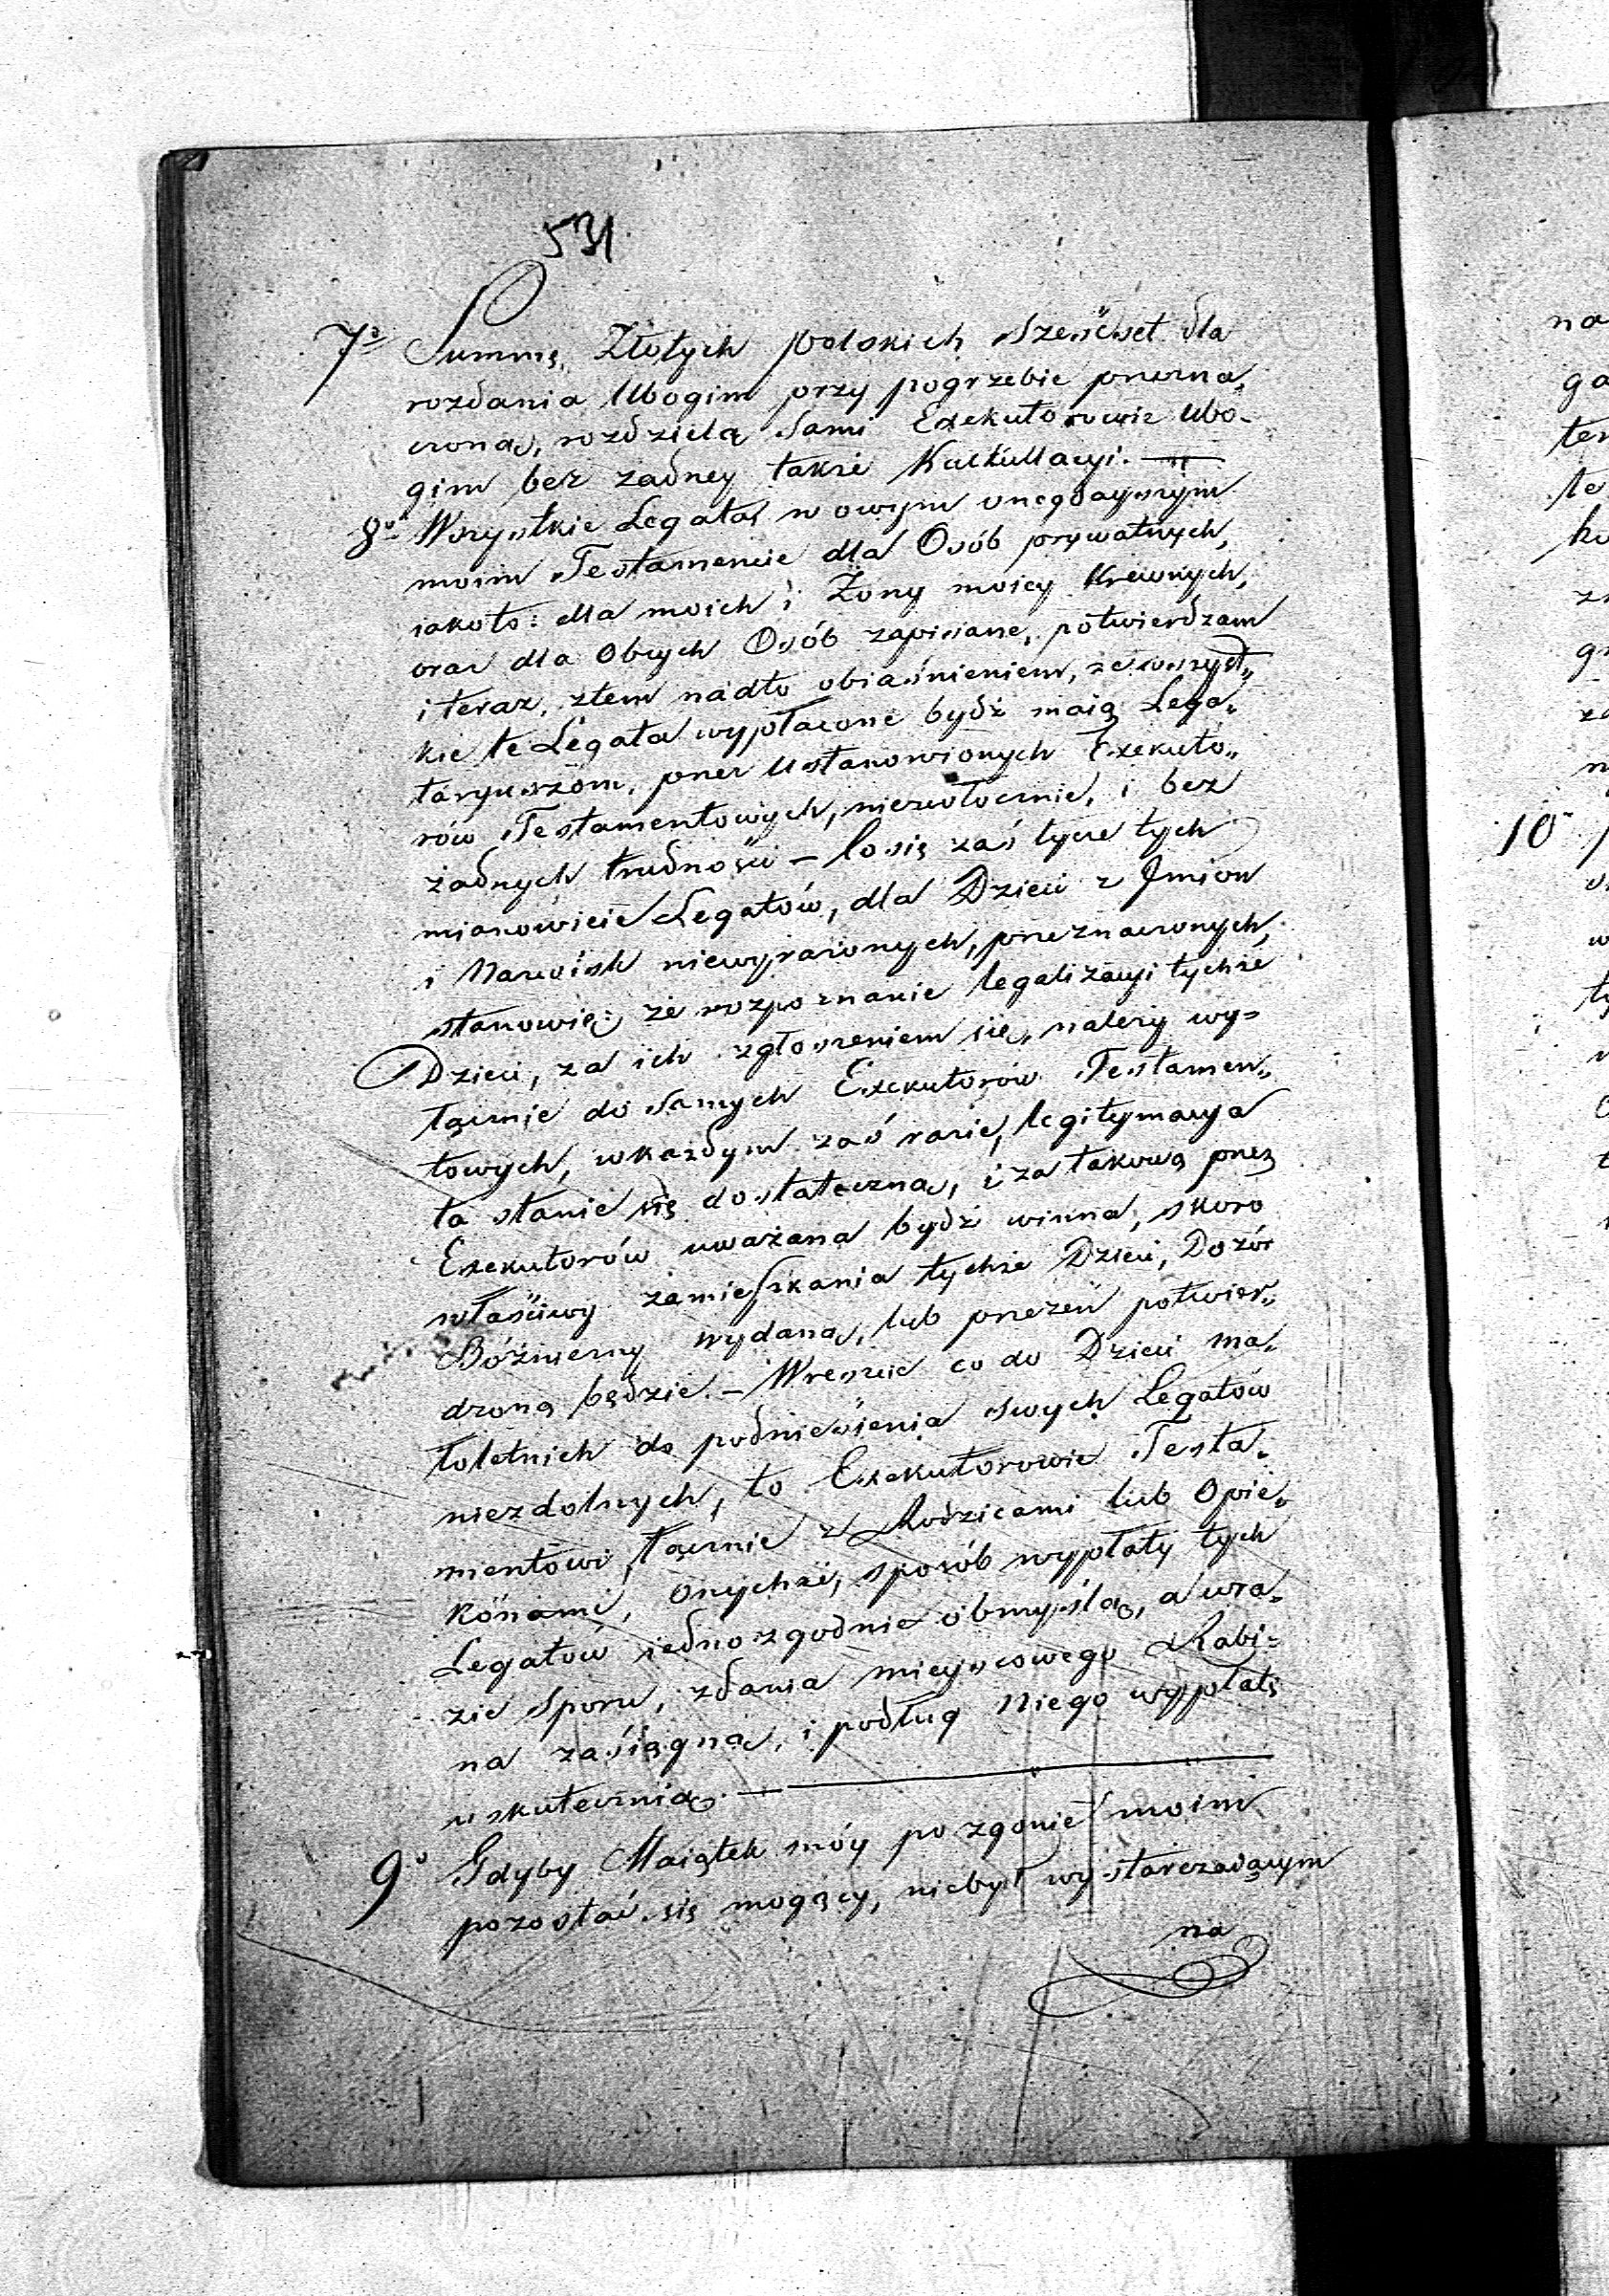 531
7° Summę Złotych polskich Sześćset dla
rozdania Ubogim przy pogrzebie przezna„
czoną, rozdzielą Sami Exekutorowie Ubo-
gim bez żadney także Kalkullacyi. —
8° Wszystkie Legata w owym onegdayszym
moim Testamencie dla Osób prywatnych,
iakoto: dla moich i Żony moiey Krewnych,
oraz dla Obcych Osób zapisane, potwierdzam
i teraz, ztem nadto obiaśnieniem, że wszyst„
kie te Legata wypłacone bydź maią Lega„
taryuszom, przez Ustanowionych Exekuto„
rów Testamentowych, niezwłocznie, i bez
żadnych trudności — Co się zaś tycze tych
mianowicie Legatów, dla Dzieci z Jmion
i Nazwisk niewyrażonych, przeznaczonych,
stanowię: że rozpoznanie legalizacyi tychże
Dzieci, za ich zgłoszeniem się, należy wy=
łącznie do Samych Exekutorów Testamen„
towych, wkażdym zaś razie, legitymacya
ta stanie się dostateczną, i za takową przez
Exekutorów uważana bydź winna, skoro
właściwy zamieszkania tychże Dzieci, Dozór
Bóżniczny wydaną, lub przezeń potwier„
dzoną będzie. — Wreszcie co do Dzieci ma„
łoletnich do podniesienia swych Legatów
niezdolnych, to Exekutorowie Testa„
mentowi, łącznie z Rodzicami lub Opie„
kónami, onychże, sposób wypłaty tych
Legatów iednozgodnie obmyślą, a wra„
zie Sporu, zdania mieyscowego Rabi=
na zasięgną, i podług niego wypłatę
uskutecznią. —
9° Gdyby Maiątek móy po zgonie moim
pozostać się mogący, niebył wystarczaiącym
na
na
10